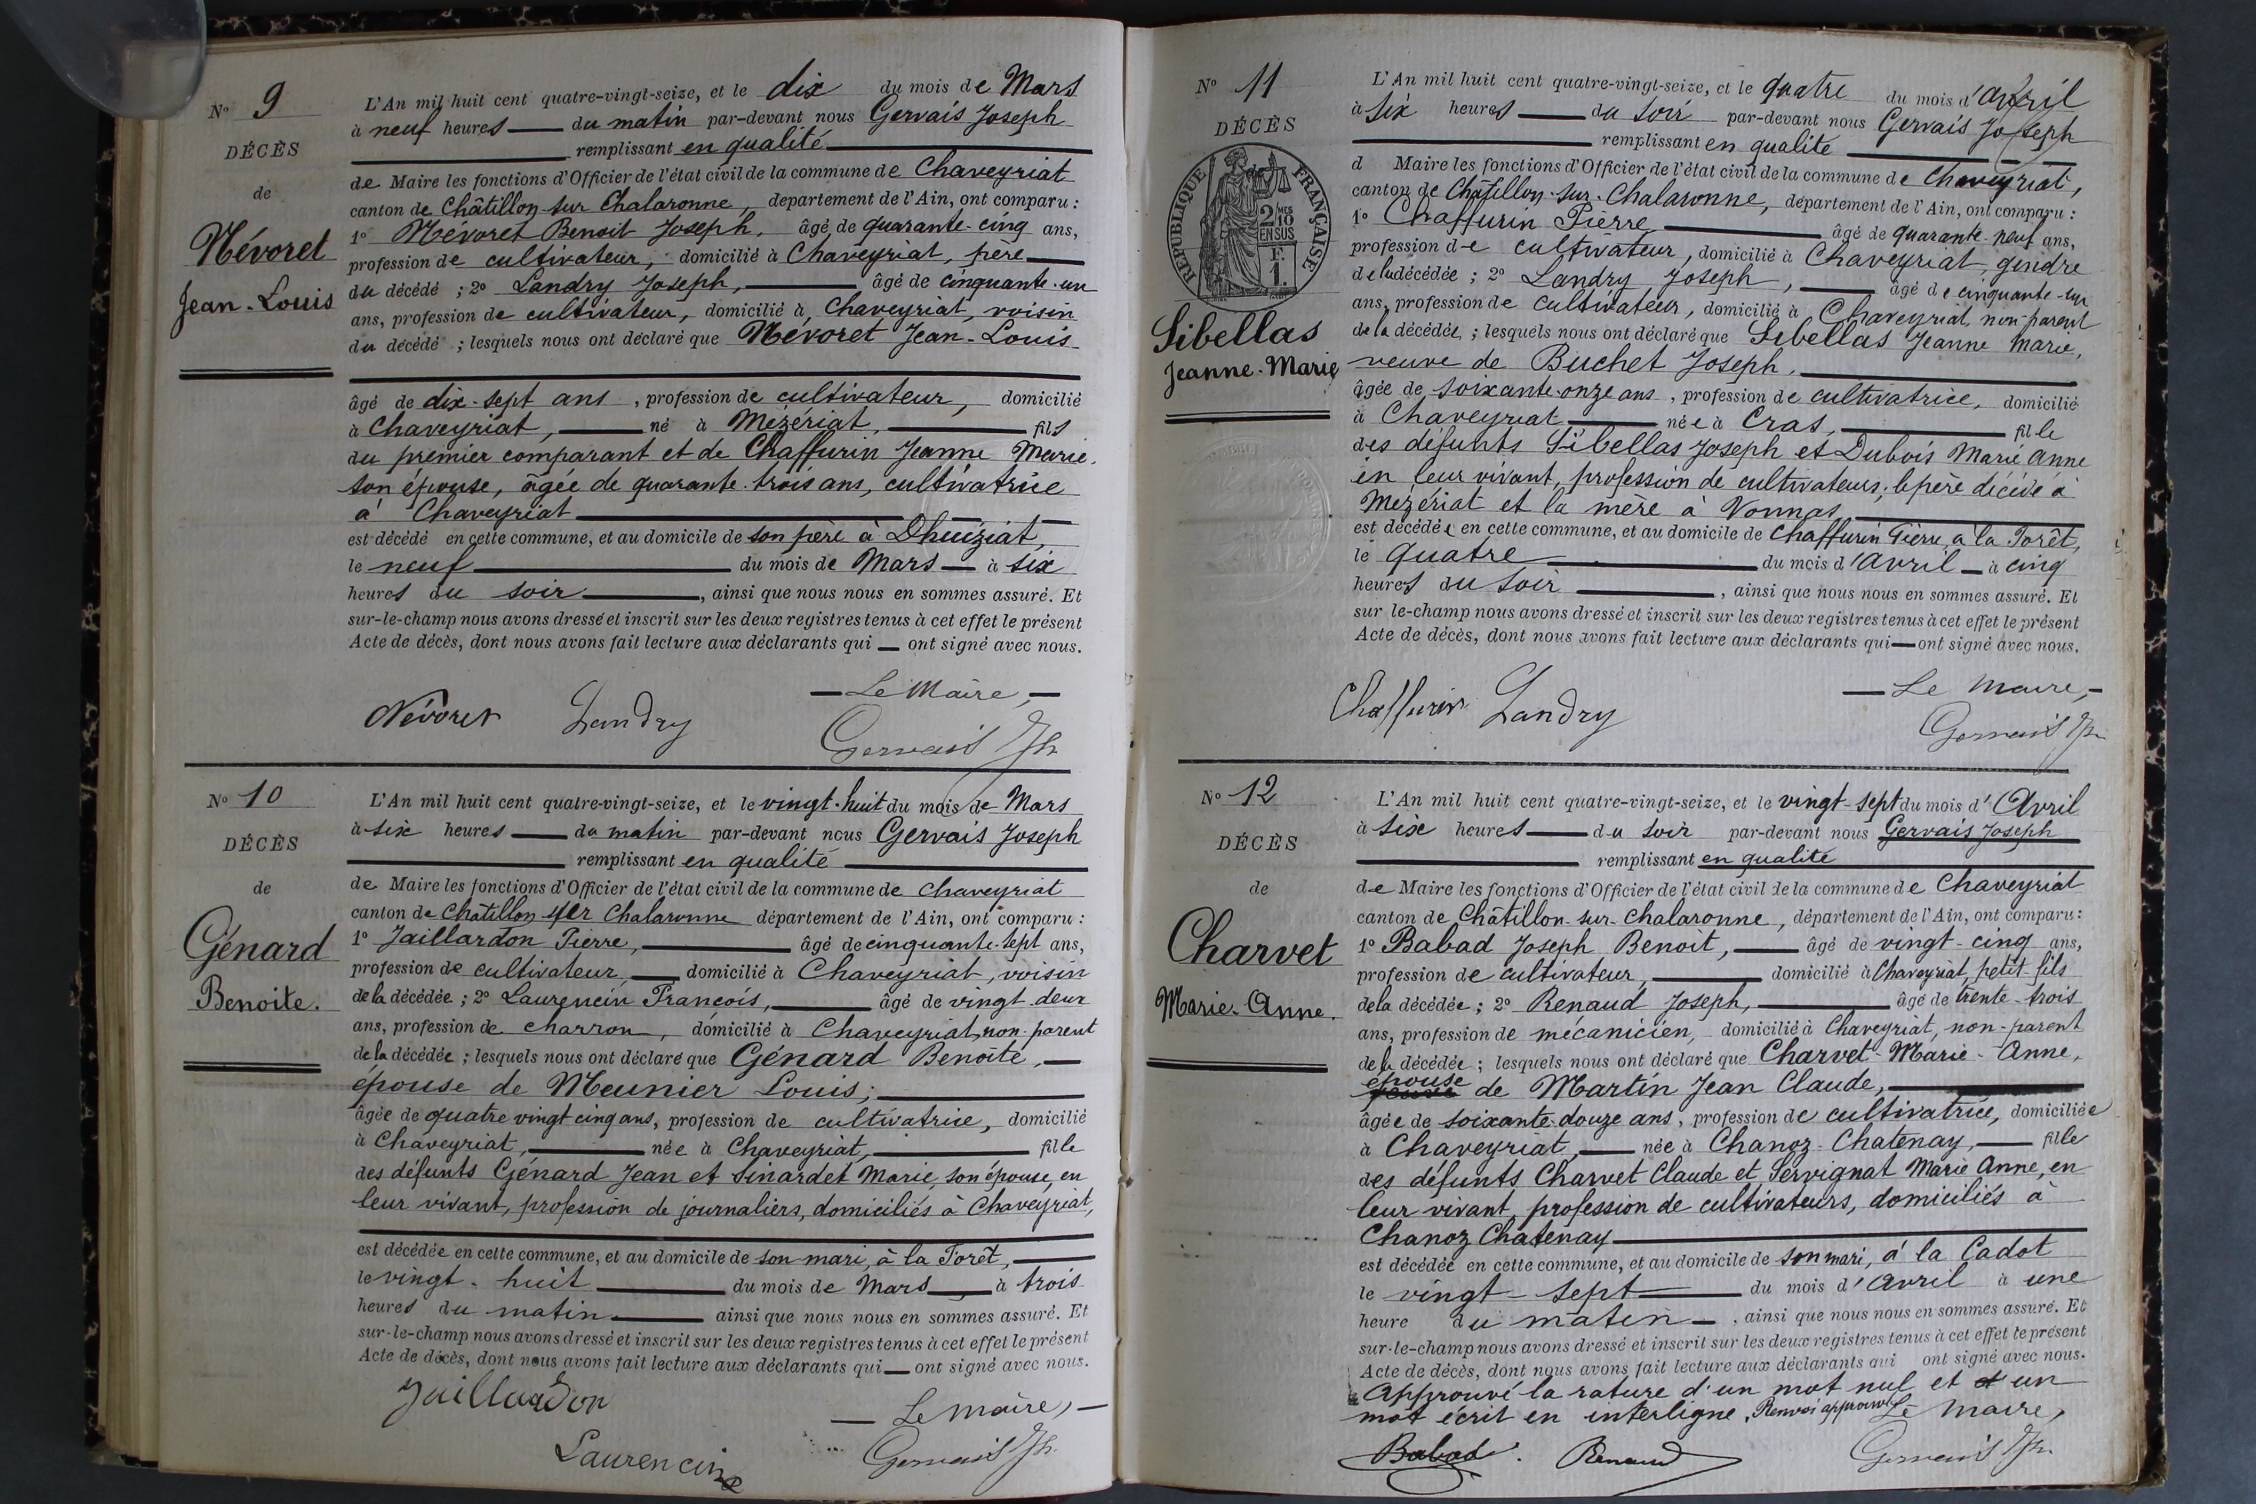 N° 9
DÉCÈS
de
Névoret
Jean-Louis
L'An mil huit cent quatre-vingt-seize, et le dix du mois de Mars
à neuf heures du matin par-devant nous Gervais Joseph
remplissant en qualité
de Maire les fonctions d'Officier de l'état civil de la commune de Chaveyriat
canton de Châtillon-sur Chalaronne, département de l'Ain, ont comparu :
1° Névoret Benoit Joseph, âgé de quarante-cinq ans,
profession de cultivateur, domicilié à Chaveyriat, père
du décédé ; 2° Landry Joseph, âgé de cinquante-un
ans, profession de cultivateur, domicilié à Chaveyriat, voisin
du décédé ; lesquels nous ont déclaré que Névoret Jean-Louis
âgé de dix-sept ans, profession de cultivateur, domicilié
à Chaveyriat, né à Mézériat, fils
du premier comparant et de Chaffurin Jeanne Marie,
son épouse, âgée de quarante-trois ans, cultivatrice
à Chaveyriat
est décédé en cette commune, et au domicile de son père à Dhuiziat,
le neuf du mois de Mars à six
heures du soir, ainsi que nous nous en sommes assuré. Et
sur-le-champ nous avons dressé et inscrit sur les deux registres tenus à cet effet le présent
Acte de décès, dont nous avons fait lecture aux déclarants qui ont signé avec nous.
Le Maire,
Névoret Landry Gervais Jh
N° 10
DÉCÈS
de
Génard
Benoite.
L'An mil huit cent quatre-vingt-seize, et le vingt-huit du mois de Mars
à six heures du matin par-devant nous Gervais Joseph
remplissant en qualité
de Maire les fonctions d'Officier de l'état civil de la commune de Chaveyriat
canton de Châtillon sur Chalaronne département de l'Ain, ont comparu :
1° Jaillardon Pierre, âgé de cinquante-sept ans,
profession de cultivateur, domicilié à Chaveyriat, voisin
de la décédée ; 2° Laurencin François, âgé de vingt-deux
ans, profession de charron, domicilié à Chaveyriat, non-parent
de la décédée ; lesquels nous ont déclaré que Génard Benoite,
épouse de Meunier Louis ;
âgée de quatre vingt cinq ans, profession de cultivatrice, domicilié
à Chaveyriat, née à Chaveyriat, fille
des défunts Génard Jean et Sinardet Marie, son épouse, en
leur vivant, profession de journaliers, domiciliés à Chaveyriat,
est décédée en cette commune, et au domicile de son mari, à la Forêt,
le vingt-huit du mois de Mars à trois
heures du matin ainsi que nous nous en sommes assuré. Et
sur-le-champ nous avons dressé et inscrit sur les deux registres tenus à cet effet le présent
Acte de décès, dont nous avons fait lecture aux déclarants qui ont signé avec nous.
Jaillardon
Le Maire,
Laurencin Gervais Jh.
N° 11
DÉCÈS
RÉPUBLIQUE FRANÇAISE
2/10 MES
EN SUS
F.
1.
Sibellas
Jeanne-Marie
L'An mil huit cent quatre-vingt-seize, et le quatre du mois d'avril
à six heures du soir par-devant nous Gervais Joseph
remplissant en qualité
d Maire les fonctions d'Officier de l'état civil de la commune de Chaveyriat,
canton de Châtillon-sur-Chalaronne, département de l'Ain, ont comparu :
1° Chaffurin Pierre âgé de quarante-neuf ans,
profession de cultivateur, domicilié à Chaveyriat, gendre
de la décédée ; 2° Landry Joseph, âgé de cinquante-un
ans, profession de cultivateur, domicilié à Chaveyriat, non-parent
de la décédée ; lesquels nous ont déclaré que Sibellas Jeanne Marie,
veuve de Buchet Joseph,
âgée de soixante-onze ans, profession de cultivatrice, domicilié
à Chaveyriat née à Cras, fille
des défunts Sibellas Joseph et Dubois Marie Anne
en leur vivant, profession de cultivateurs, le père décédé à
Mézériat et la mère à Vonnas,
est décédée en cette commune, et au domicile de Chaffurin Pierre, à la Forêt,
le quatre du mois d'avril à cinq
heures du soir, ainsi que nous nous en sommes assuré. Et
sur-le-champ nous avons dressé et inscrit sur les deux registres tenus à cet effet le présent
Acte de décès, dont nous avons fait lecture aux déclarants qui ont signé avec nous.
Le Maire,
Chaffurin Landry Gervais Jh
N° 12
DÉCÈS
de
Charvet
Marie-Anne.
L'An mil huit cent quatre-vingt-seize, et le vingt-sept du mois d'Avril
à six heures du soir par-devant nous Gervais Joseph
remplissant en qualité
de Maire les fonctions d'Officier de l'état civil de la commune de Chaveyriat
canton de Châtillon-sur-Chalaronne, département de l'Ain, ont comparu :
1° Babad Joseph Benoit, âgé de vingt-cinq ans,
profession de cultivateur, domicilié à Chaveyriat, petit-fils
de la décédée ; 2° Renaud Joseph, âgé de trente-trois
ans, profession de mécanicien, domicilié à Chaveyriat, non-parent
de la décédée ; lesquels nous ont déclaré que Charvet-Marie-Anne,
épouse
de Martin Jean Claude,
âgée de soixante-douze ans, profession de cultivatrice, domiciliée
à Chaveyriat, née à Chanoz-Chatenay, fille
des défunts Charvet Claude et Servignat Marie Anne, en
leur vivant, profession de cultivateurs, domiciliés à
Chanoz Chatenay
est décédée en cette commune, et au domicile de son mari, à la Cadot
le vingt-sept du mois d'avril à une
heure du matin, ainsi que nous nous en sommes assuré. Et
sur-le-champ nous avons dressé et inscrit sur les deux registres tenus à cet effet le présent
Acte de décès, dont nous avons fait lecture aux déclarants qui ont signé avec nous.
Approuvé la rature d'un mot nul et un
mot écrit en interligne. Renvoi approuvé Le Maire,
Babad. Renaud Gervais Jh.